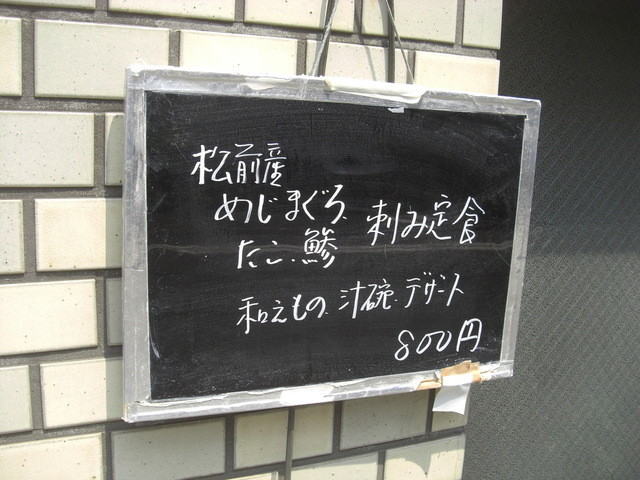 松前産
めじまぐろ、
たこ、鯵
刺み定食
和えもの、汁碗、デザート
800円